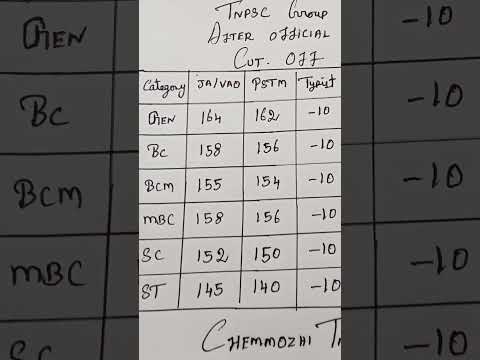 TNPSC Group
After official
Cut. Off
Category JA/VAO PSTM Typist
GEN 164 162 -10
BC 158 156 -10
BCM 155 154 -10
MBC 158 156 -10
SC 152 150 -10
ST 145 140 -10
CHEMMOZHI
GEN
BC
BCM
MBC
SC
-10
-10
-10
-10